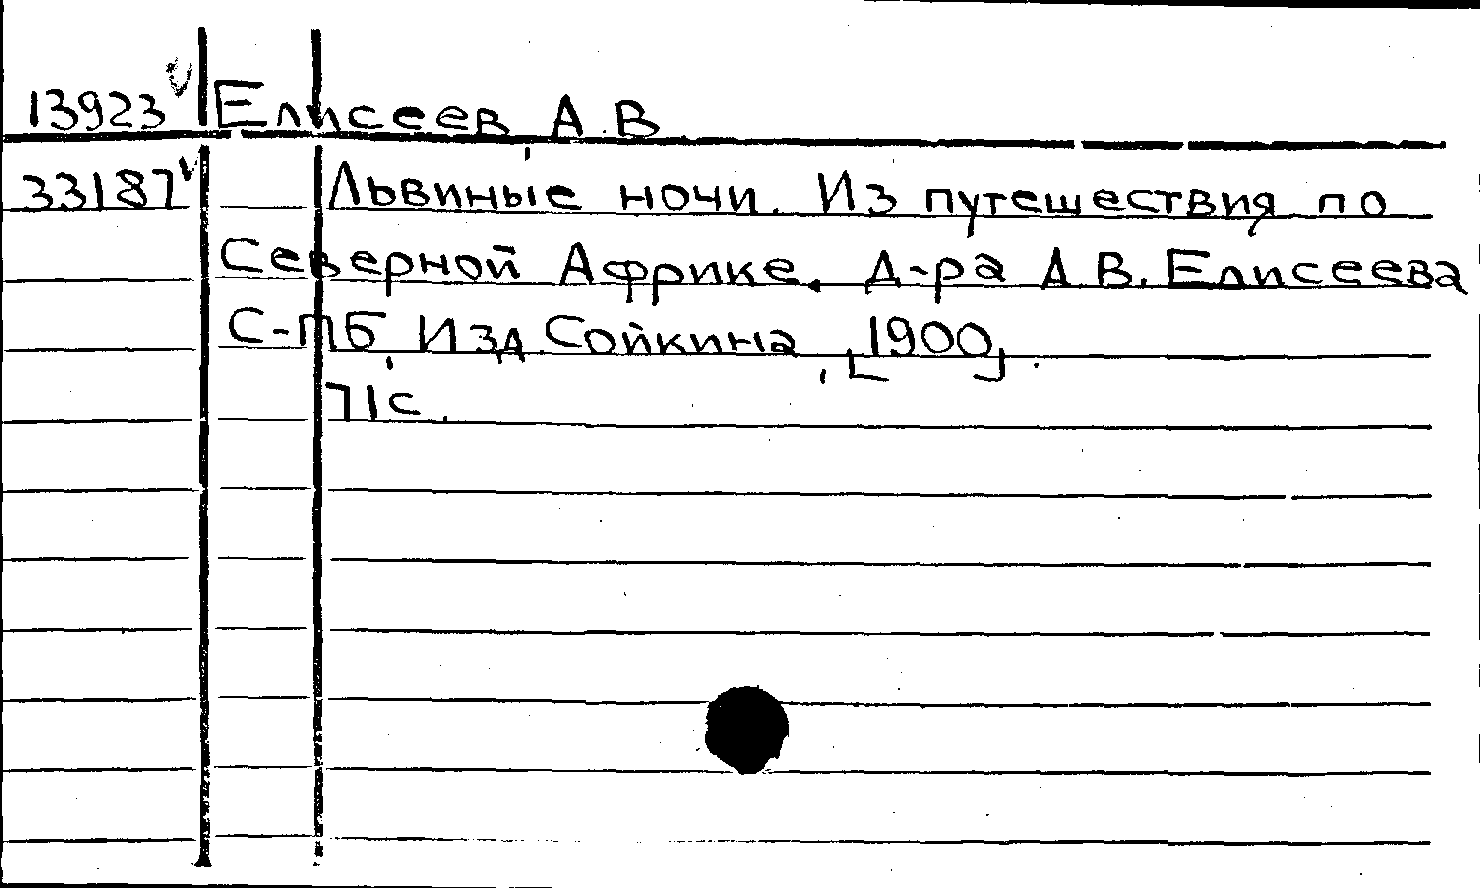 13923 Елисеев, А.В.
33187 Львиные ночи. Из путешествия по
Северной Африке. Д-ра А.В. Елисеева
С-Пб, Изд. Сойкина, [1900].
71с.